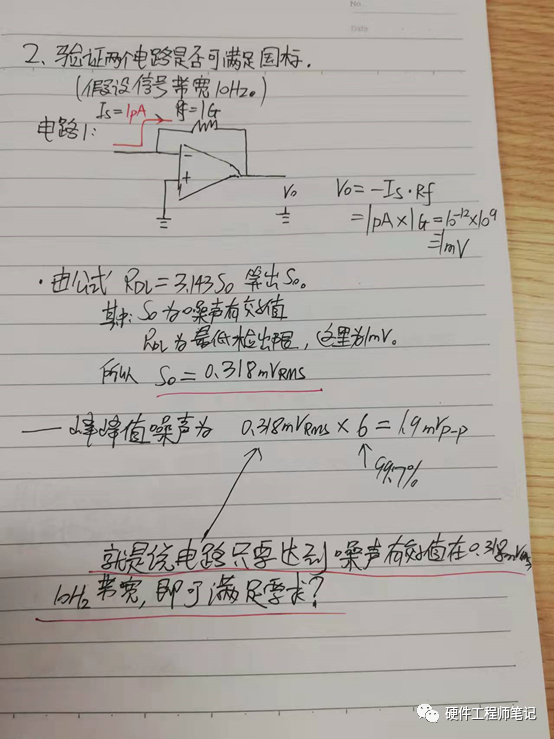 No.
Date
2、验证两个电路是否可满足国标.
(假设信号带宽10Hz。)
电路1:
Is=1pA Rf=1G
Vo
Vo=-Is·Rf
=1pA×1G=10⁻¹²×10⁹
=1mV
·由公式 RDL=3.143So 算出So。
其中: So为噪声有效值
RDL为最低检出限,这里为1mV。
所以 So=0.318mVRMS
—峰峰值噪声为 0.318mVRms×6=1.9mVp-p
99.7%
就是说电路只要达到噪声有效值在0.318mVRMS
10Hz带宽,即可满足要求?
硬件工程师笔记